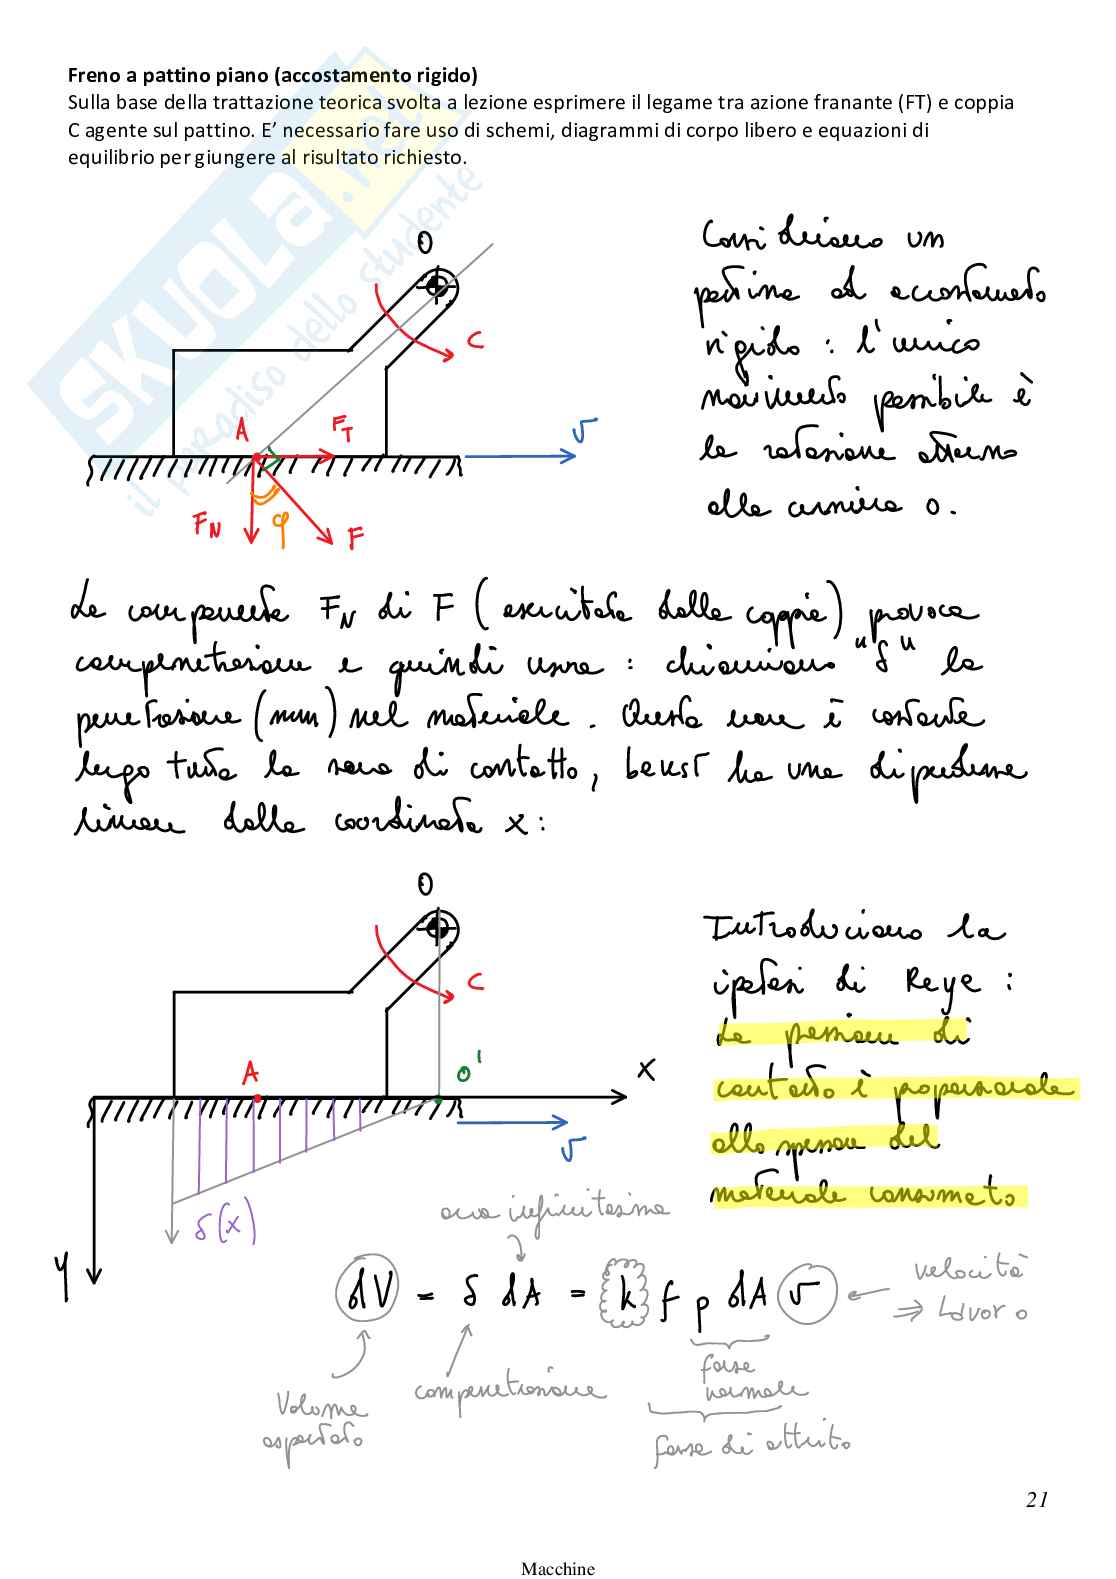 Freno a pattino piano (accostamento rigido)
Sulla base della trattazione teorica svolta a lezione esprimere il legame tra azione franante (FT) e coppia
C agente sul pattino. E' necessario fare uso di schemi, diagrammi di corpo libero e equazioni di
equilibrio per giungere al risultato richiesto.
SKUOLA.net
il paradiso dello studente
O
C
A
FT
v
FN
φ
F
Consideriamo un
pattino ad accostamento
rigido : l'unico
movimento possibile è
la rotazione attorno
alla cerniera O.
La componente FN di F (esercitata dalla coppia) provoca
compenetrazione e quindi usura : chiamiamo "δ" la
penetrazione (mm) nel materiale. Questa non è costante
lungo tutta la zona di contatto, bensì ha una dipendenza
lineare dalla coordinata x :
O
C
A
O'
x
v
δ(x)
y
Introduciamo la
ipotesi di Reye :
La pressione di
contatto è proporzionale
allo spessore del
materiale consumato
area infinitesima
dV = δ dA = k f p dA v
velocità
⇒ Lavoro
Volume
asportato
compenetrazione
forza
normale
forza di attrito
21
Macchine